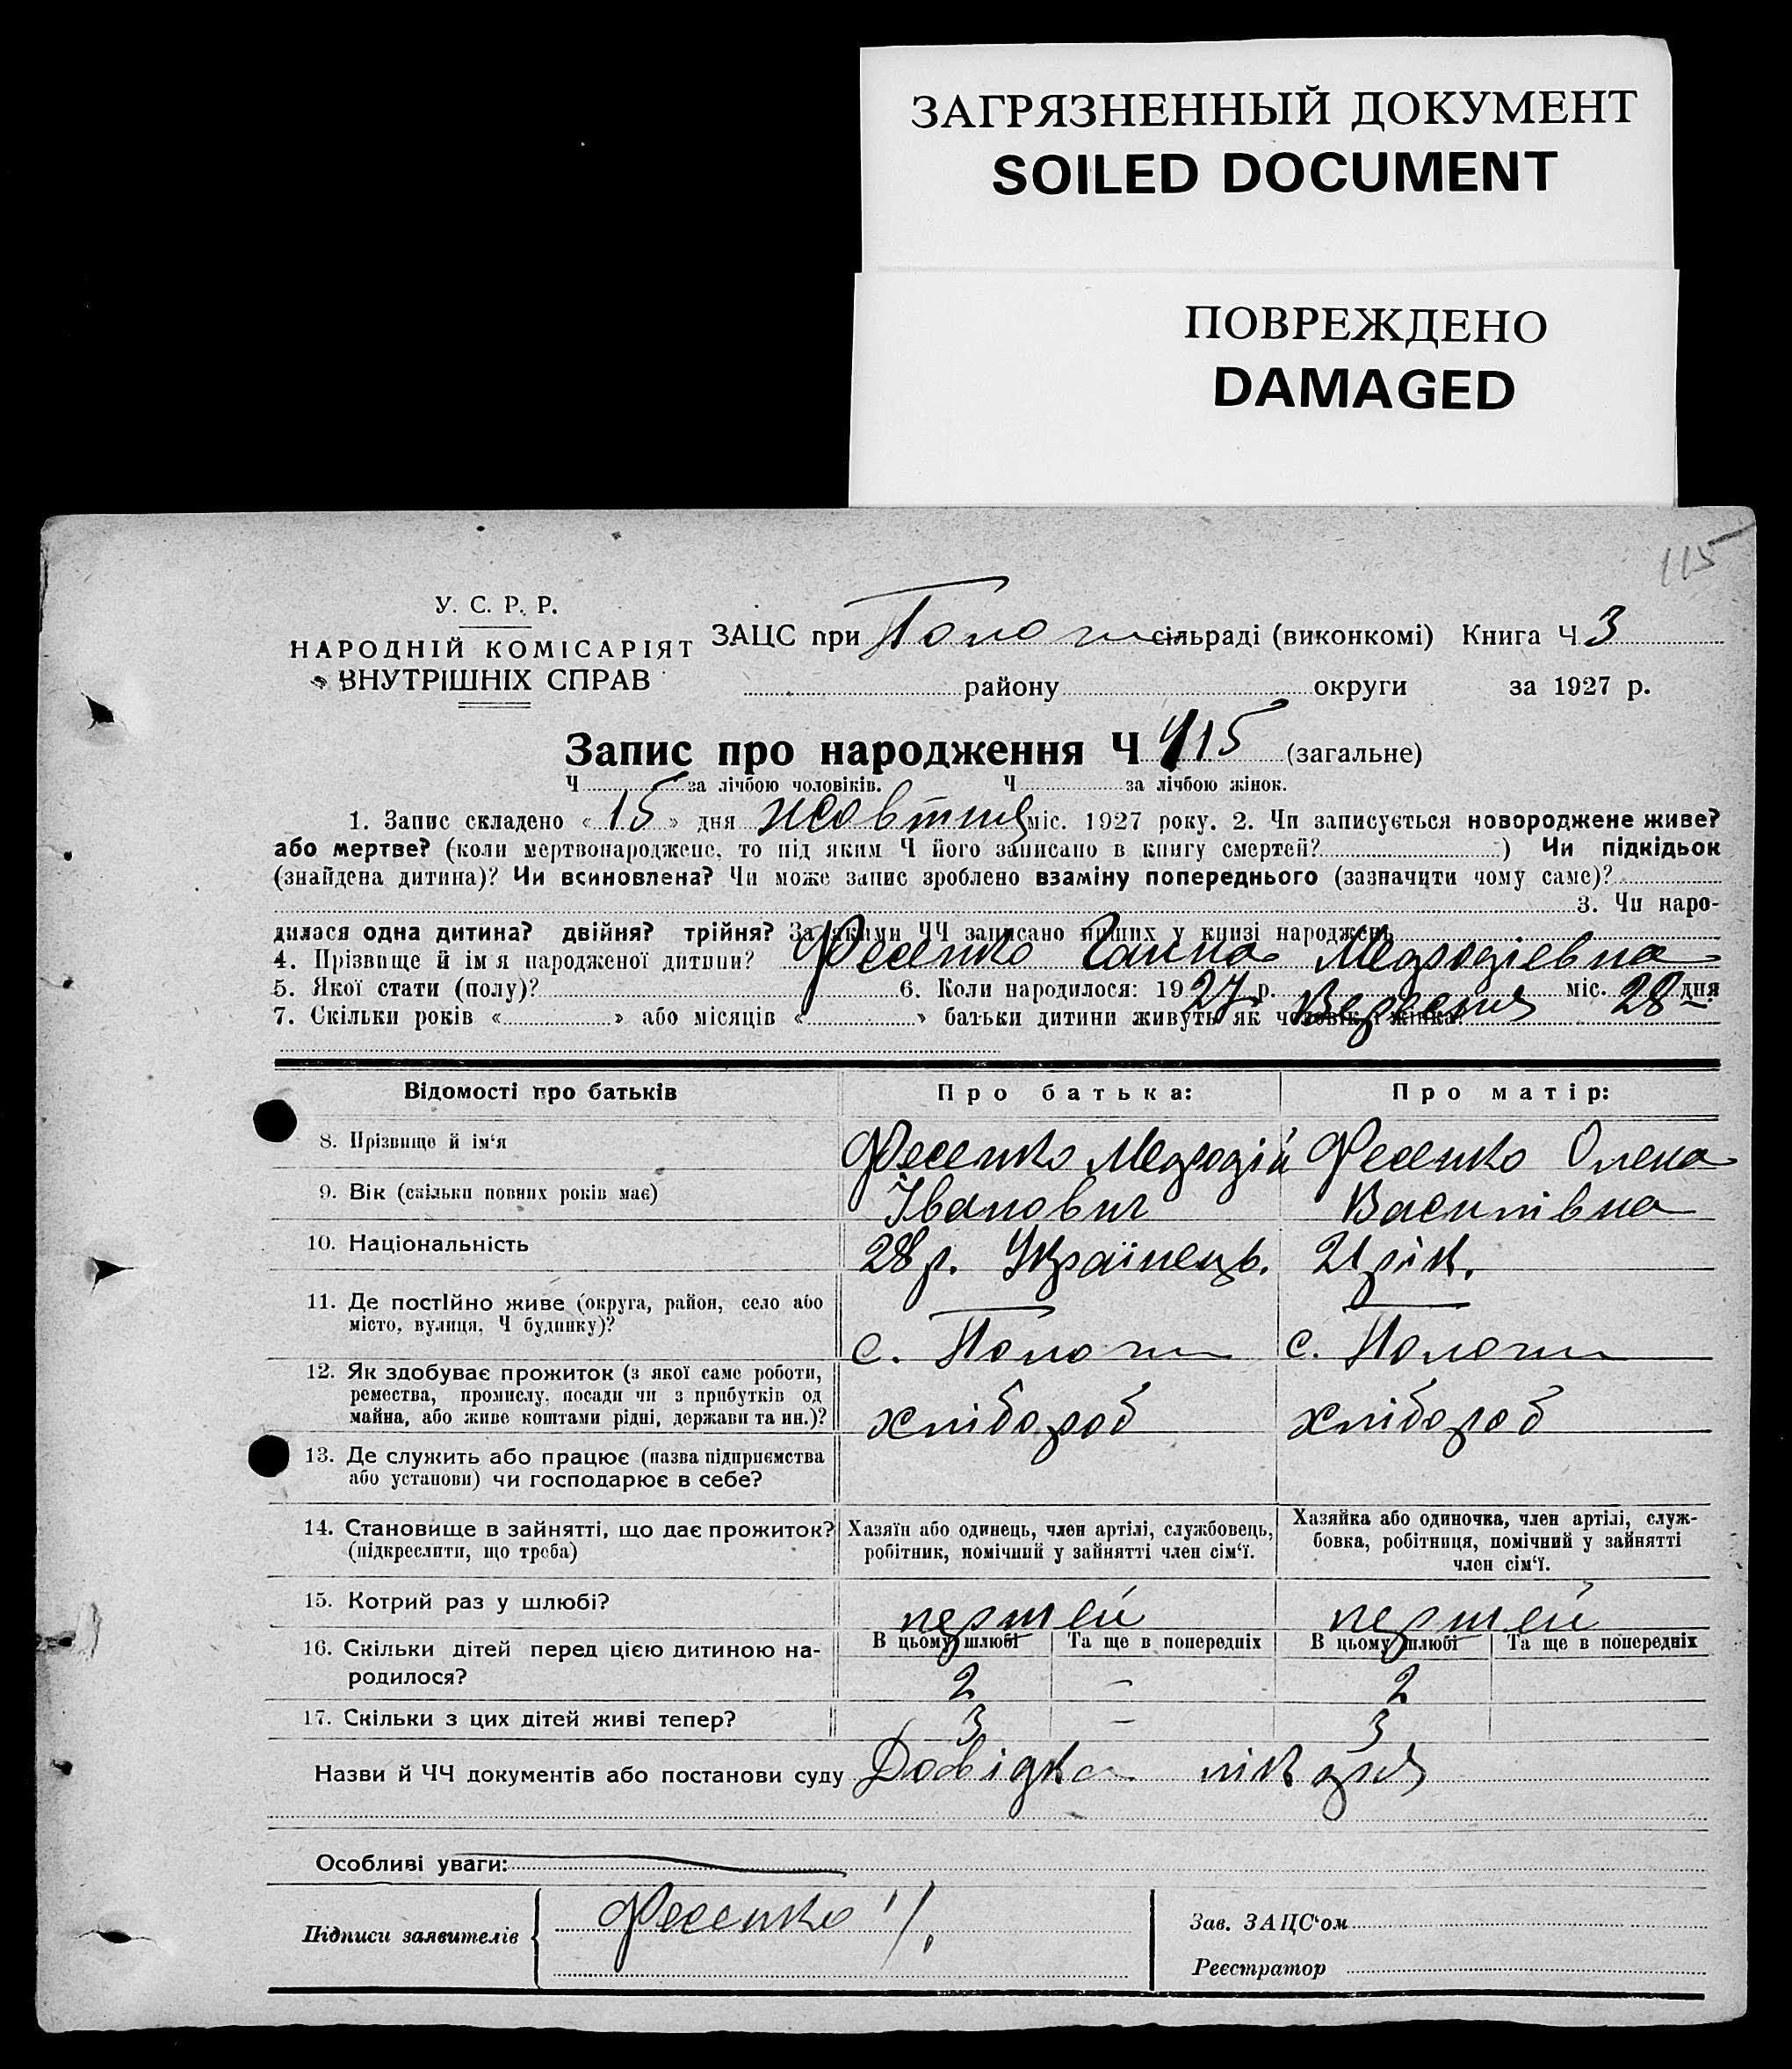 ЗАГРЯЗНЕННЫЙ ДОКУМЕНТ
SOILED DOCUMENT
ПОВРЕЖДЕНО
DAMAGED
115
У. С. Р. Р.
НАРОДНІЙ КОМІСАРІЯТ
ВНУТРІШНІХ СПРАВ
ЗАЦС при Пологи сільраді (виконкомі) Книга Ч 3
району округи за 1927 р.
Запис про народження Ч 415 (загальне)
Ч за лічбою чоловіків. Ч за лічбою жінок.
1. Запис складено « 15 » дня жовтня міс. 1927 року. 2. Чи записується новороджене живе?
або мертве? (коли мертвонароджене, то під яким Ч його записано в книгу смертей? ) Чи підкідьок
(знайдена дитина)? Чи всиновлена? Чи може запис зроблено взаміну попереднього (зазначити чому саме)?
3. Чи наро-
дилася одна дитина? двійня? трійня? За якими ЧЧ записано инших у книзі народжень
4. Прізвище й ім я народженої дитини? Фесенко Ганна Мефодіевна
5. Якої стати (полу)? 6. Коли народилося: 1927 р. Вересня міс. 28 дня
7. Скільки років « » або місяців « » батьки дитини живуть як чоловік і жінка?
Відомості про батьків Про батька: Про матір:
8. Прізвище й ім‘я Фесенко Мефодій Фесенко Олена
9. Вік (скільки повних років має) Іванович Василівна
10. Національність 28 р. Українець. 21 рік.
11. Де постійно живе (округа, район, село або
місто, вулиця, Ч будинку)? с. Пологи с. Пологи
12. Як здобуває прожиток (з якої саме роботи,
ремества, промислу, посади чи з прибутків од
майна, або живе коштами рідні, держави та ин.)? хлібороб хлібороб
13. Де служить або працює (назва підприємства
або установи) чи господарює в себе?
14. Становище в зайнятті, що дає прожиток? Хазяїн або одинець, член артілі, службовець, Хазяйка або одиночка, член артілі, служ-
(підкреслити, що треба) робітник, помічний у зайнятті член сім‘ї. бовка, робітниця, помічний у зайнятті
член сім‘ї.
15. Котрий раз у шлюбі? першей першей
16. Скільки дітей перед цією дитиною на- В цьому шлюбі Та ще в попередніх В цьому шлюбі Та ще в попередніх
родилося? 2 – 2
17. Скільки з цих дітей живі тепер? 3 – 3
Назви й ЧЧ документів або постанови суду Довідка лікаря
Особливі уваги:
Підписи заявителів Фесенко Зав. ЗАЦС‘ом
Реєстратор